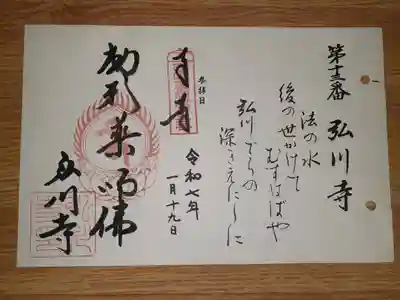 第十三番 弘川寺
法の水
後の世かけて
むすばばや
弘川でらの
深きえにしに
参拝日
奉拝
令和七年
一月十九日
薬師佛
弘川寺